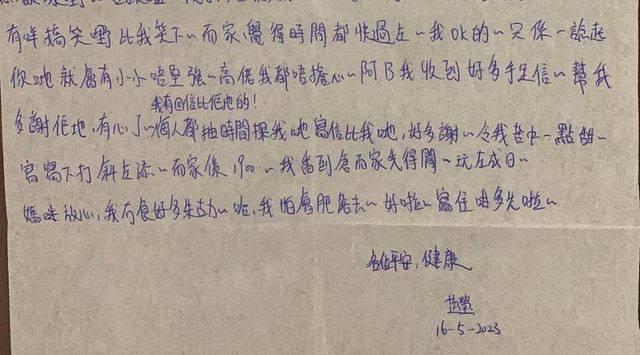 有咩搞笑嘢比我笑下～而家,覺得時間都快過左～我OK的～只係一諗起
你哋就會有小小唔堅強～高佬我都唔擔心～阿B我收到好多手足信～幫我
我有回信比佢地的!
多謝佢地,有心了～個人都抽時間探我哋寫信比我哋,好多謝～令我苦中一點甜～
寫寫下打斜左添～而家係1900～我番到倉而家先得閒～玩左成日～
媽咪放心,我有食好多朱古力～哈,我怕會肥～好啦～寫住咁多先啦～
各位平安,健康
16-5-2023